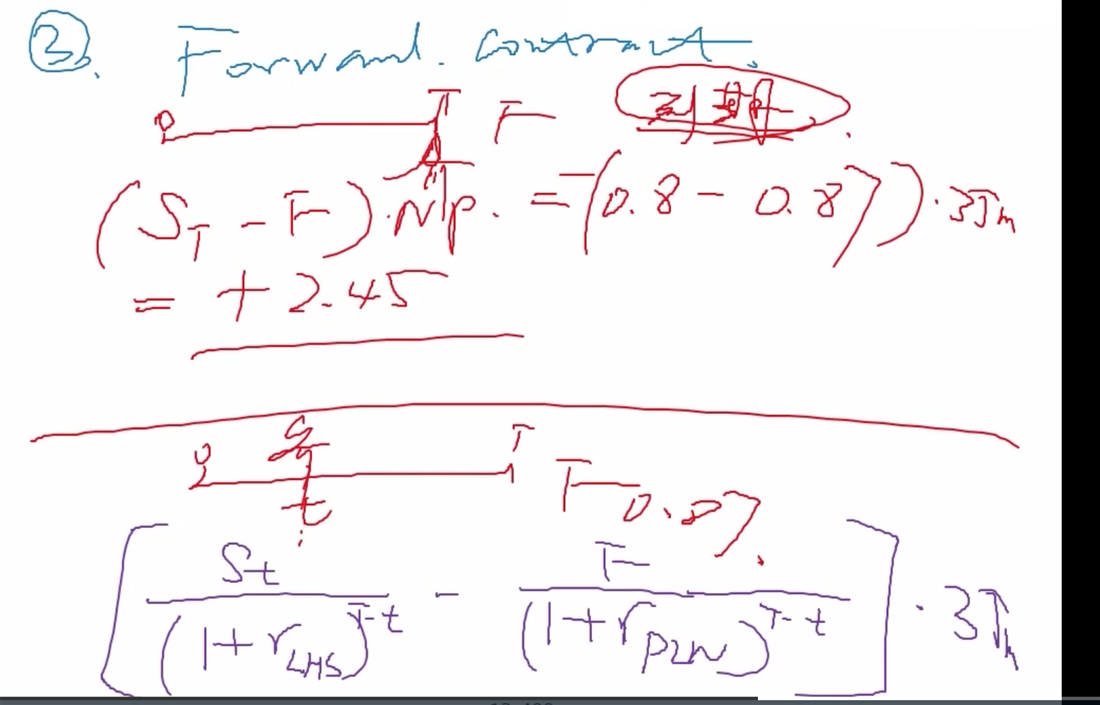 ③. Forward. contract.
0 T F 到期.
(S_T - F)·N/p. = -(0.8 - 0.87)·35m
= + 2.45
0 S t T F 0.87.
[ St / (1+r_LHS)^T-t - F / (1+r_PLN)^T-t ] · 35m